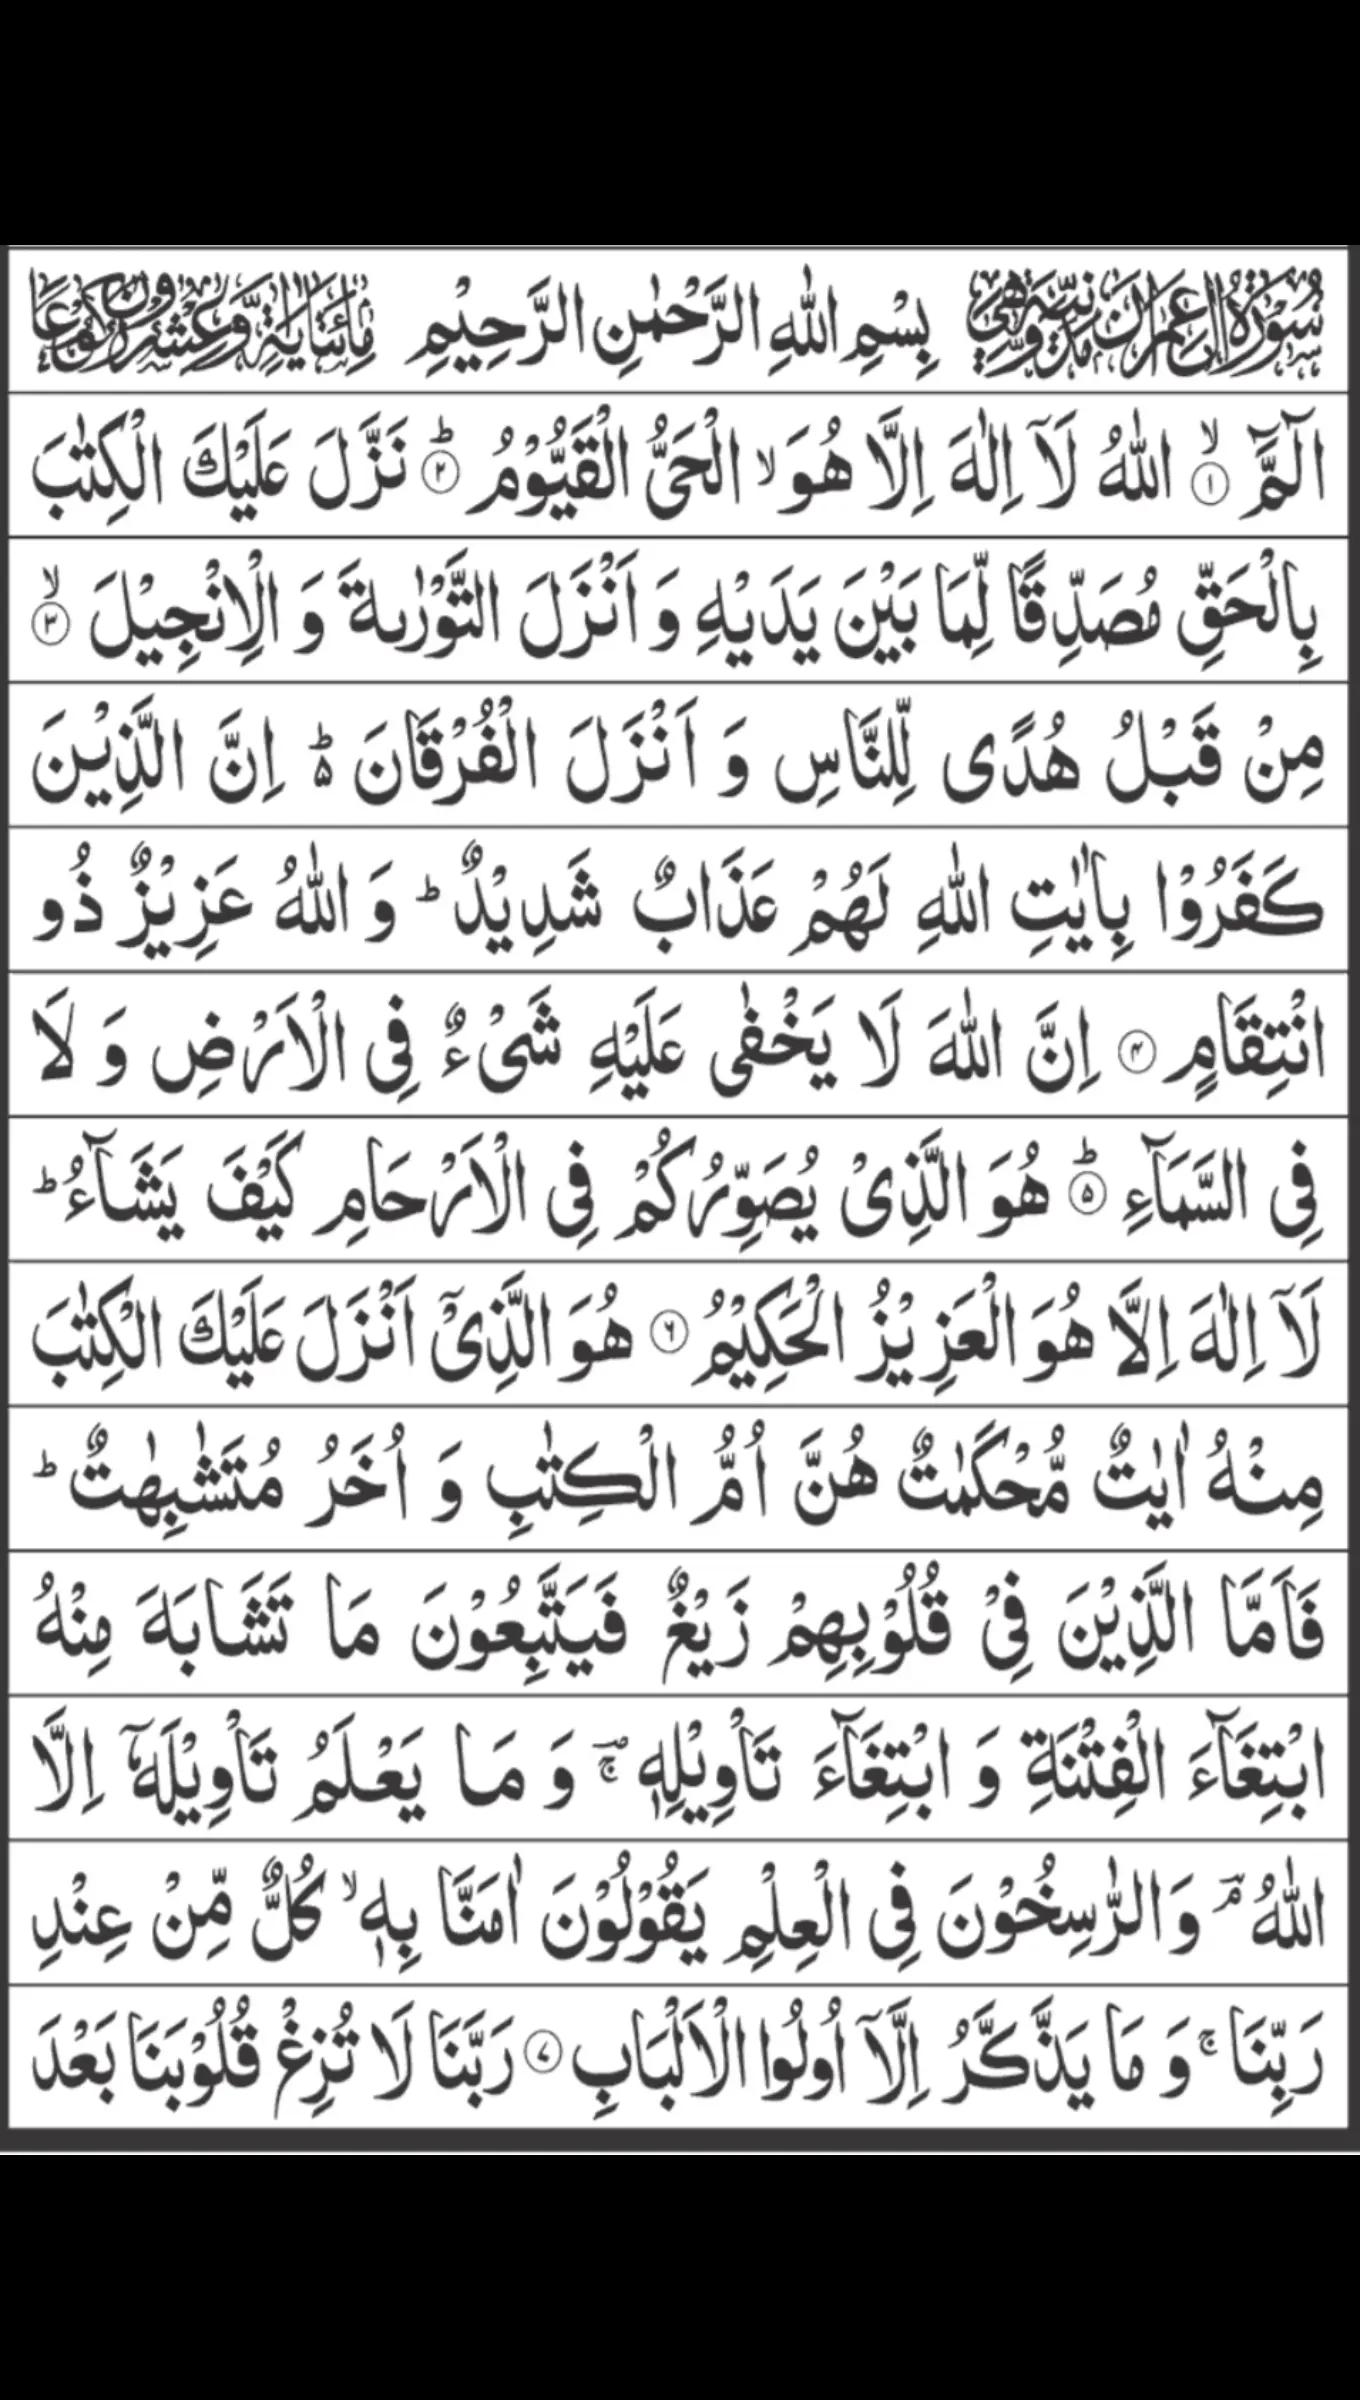 سُوْرَةُ اٰلِ عِمْرٰنَ مَدَنِيَّةٌ وَّهِيَ بِسْمِ اللّٰهِ الرَّحْمٰنِ الرَّحِيْمِ مِائَتَا اٰيَةٍ وَّعِشْرُوْنَ رُكُوْعًا
الٓمَّٓ ۙ‏﴿۱﴾ اللّٰهُ لَاۤ اِلٰهَ اِلَّا هُوَ ۙ الْحَىُّ الْقَيُّوْمُ ؕ‏﴿۲﴾ نَزَّلَ عَلَيْكَ الْكِتٰبَ
بِالْحَقِّ مُصَدِّقًا لِّمَا بَيْنَ يَدَيْهِ وَ اَنْزَلَ التَّوْرٰىةَ وَ الْاِنْجِيْلَ ۙ‏﴿۳﴾
مِنْ قَبْلُ هُدًى لِّلنَّاسِ وَ اَنْزَلَ الْفُرْقَانَ ۬ؕ اِنَّ الَّذِيْنَ
كَفَرُوْا بِاٰيٰتِ اللّٰهِ لَهُمْ عَذَابٌ شَدِيْدٌ ؕ وَ اللّٰهُ عَزِيْزٌ ذُو
انْتِقَامٍ ﴿۴﴾ اِنَّ اللّٰهَ لَا يَخْفٰى عَلَيْهِ شَىْءٌ فِى الْاَرْضِ وَ لَا
فِى السَّمَآءِ ؕ‏﴿۵﴾ هُوَ الَّذِىْ يُصَوِّرُكُمْ فِى الْاَرْحَامِ كَيْفَ يَشَآءُ ؕ
لَاۤ اِلٰهَ اِلَّا هُوَ الْعَزِيْزُ الْحَكِيْمُ ﴿۶﴾ هُوَ الَّذِىْۤ اَنْزَلَ عَلَيْكَ الْكِتٰبَ
مِنْهُ اٰيٰتٌ مُّحْكَمٰتٌ هُنَّ اُمُّ الْكِتٰبِ وَ اُخَرُ مُتَشٰبِهٰتٌ ؕ
فَاَمَّا الَّذِيْنَ فِىْ قُلُوْبِهِمْ زَيْغٌ فَيَتَّبِعُوْنَ مَا تَشَابَهَ مِنْهُ
ابْتِغَآءَ الْفِتْنَةِ وَ ابْتِغَآءَ تَاْوِيْلِهٖ ۚؔ وَ مَا يَعْلَمُ تَاْوِيْلَهٗۤ اِلَّا
اللّٰهُ ۘؔ وَ الرّٰسِخُوْنَ فِى الْعِلْمِ يَقُوْلُوْنَ اٰمَنَّا بِهٖ ۙ كُلٌّ مِّنْ عِنْدِ
رَبِّنَا ۚ وَ مَا يَذَّكَّرُ اِلَّاۤ اُولُوا الْاَلْبَابِ ﴿۷﴾ رَبَّنَا لَا تُزِغْ قُلُوْبَنَا بَعْدَ